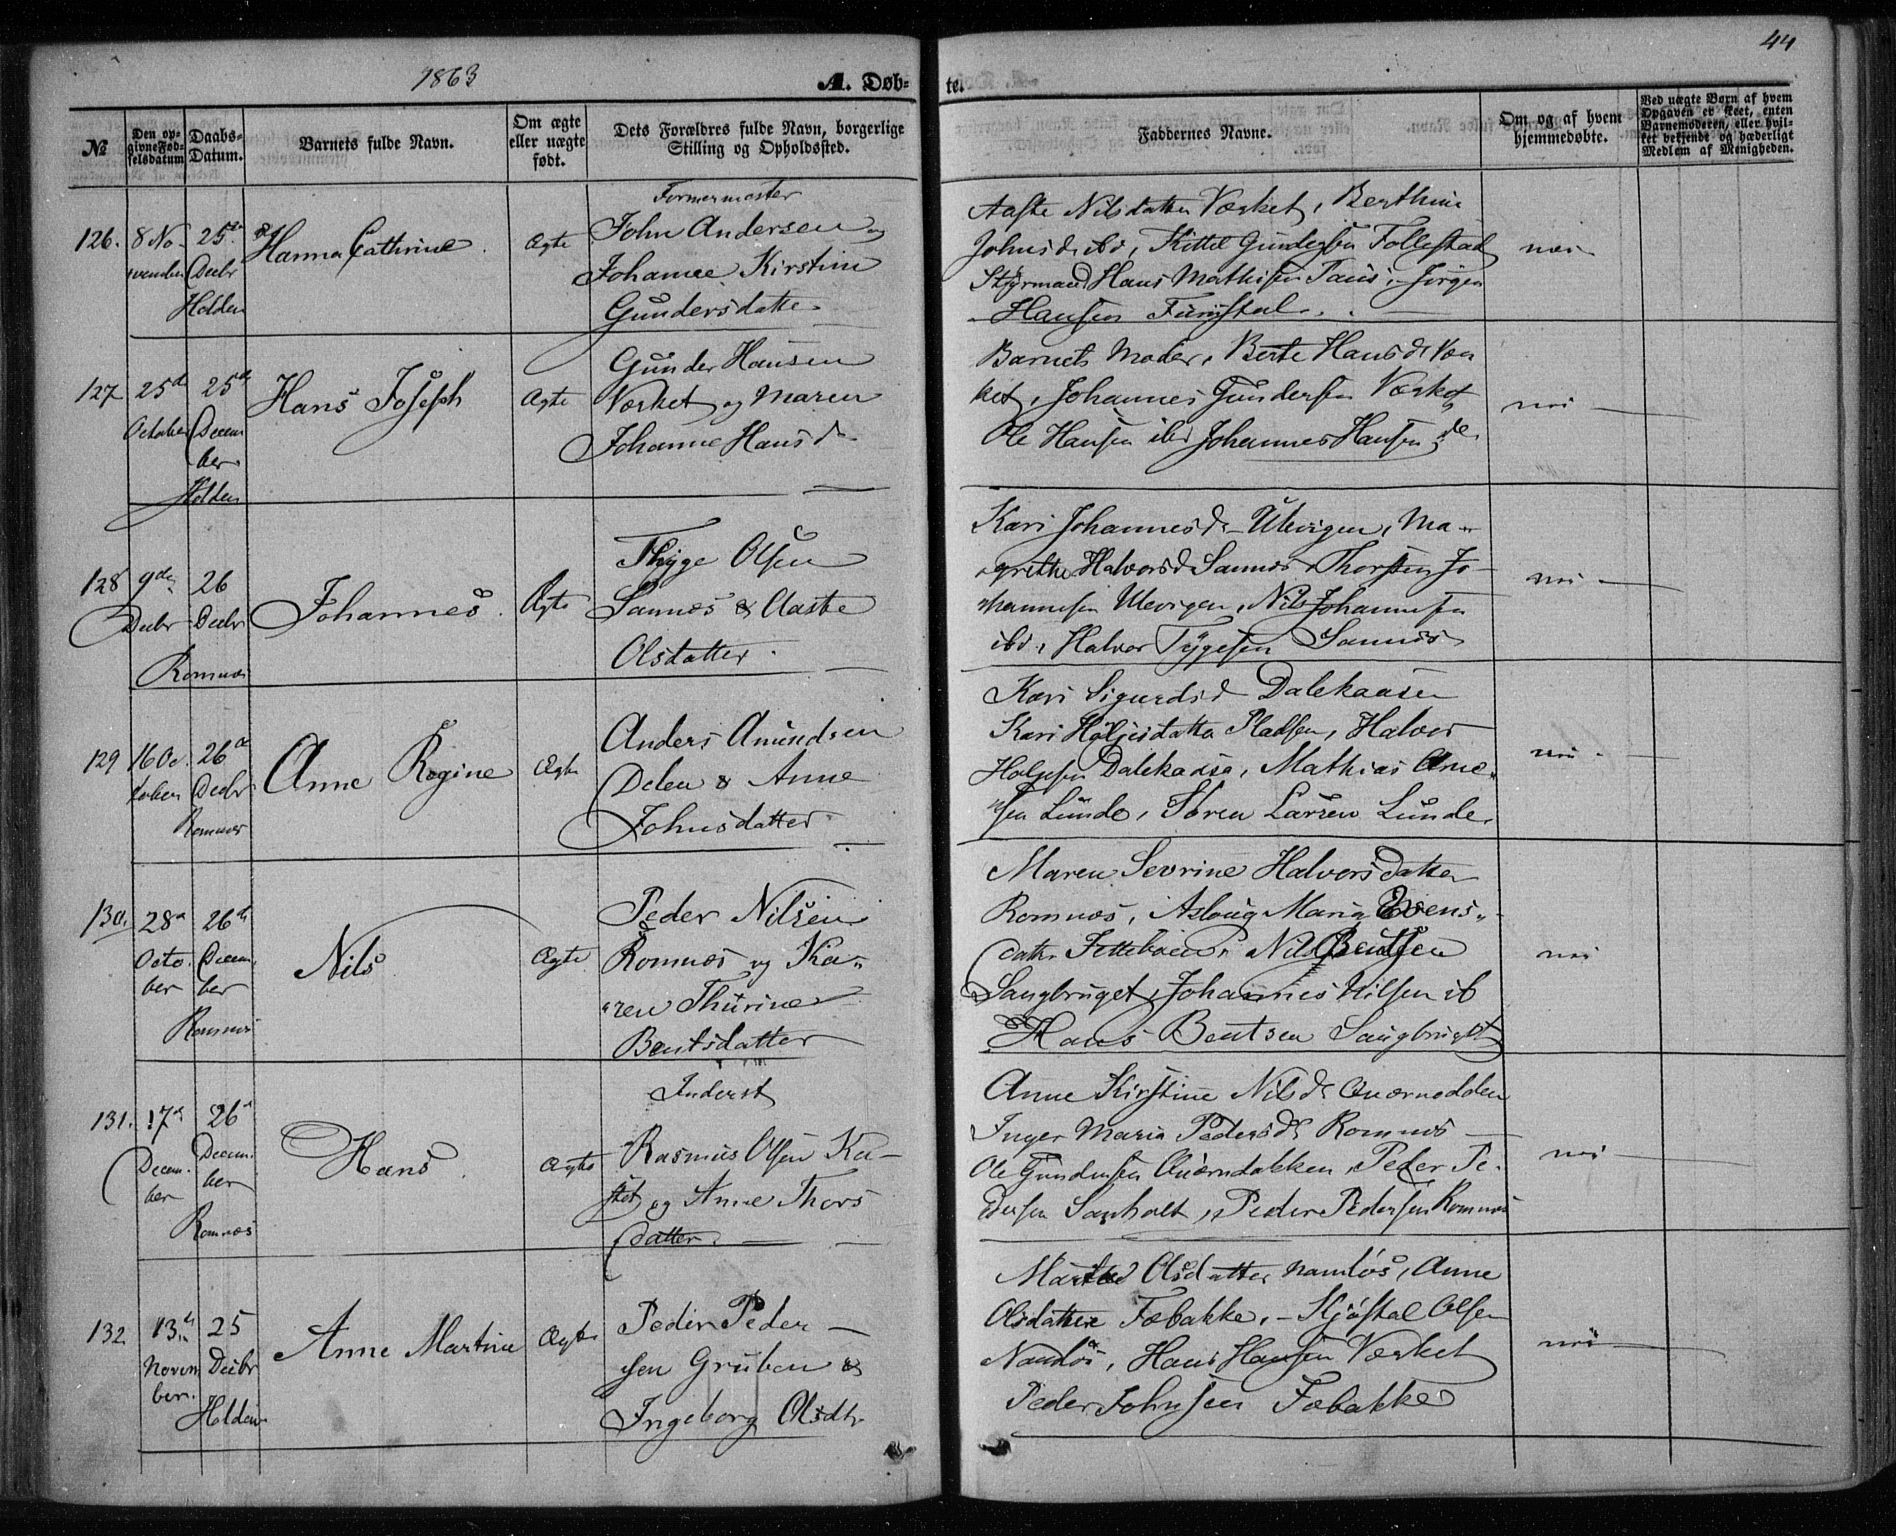 1863
A. Døb-
te.
44
№
Den op-
givne Fød-
selsdatum
Daabs-
Datum.
Barnets fulde Navn.
Om ægte
eller uægte
født.
Dets Forældres fulde Navn, borgerlige
Stilling og Opholdssted.
Faddernes Navne.
Om og af hvem
hjemmedøbte.
Ved uægte Børn af hvem
Opgaven er skeet, enten
Barnemoderen, eller hvil-
ket bekjendt og hæderligt
Medlem af Menigheden.
126.
8 No-
vember
25de
Decbr
Holden
Hanna Cathrine
Ægte
Formermester
John Andersen og
Johanne Kirstine
Gundersdatter
Aaste Nilsdatter Værket, Berthine
Johnsd ibd, Kittil Gundersen Follestad
Styrmand Hans Mathisen, Jørgen
Hansen
nei
127
25de
October
25de
Decem
ber
Holden
Hans Joseph
Ægte
Gunder Hansen
Værket og Maren
Johanne Hansd
Barnets Moder, Berte Hansdr Vær
ket, Johannes Gundersen Værket
Ole Hansen ibd Johannes Hansen
nei
128
9de
Decbr
26
Decbr
Romnæs
Johannes
Ægte
Thyge Olsen
Sannæs & Aaste
Olsdatter
Kari Johannesd Ulevigen, Ma-
grethe Halvorsd Sannæs, Thorsten Jo-
hannesen Ulevigen, Nils Johannesen
ibd, Halvor Tygesen Sannæs
nei
129
16 Oc
tober
26de
Decbr
Romnæs
Anne Regine
Ægte
Anders Amundsen
Delen & Anne
Johnsdatter
Kari Sigurdsd Dalekaasen
Kari Høljesdatter Pladsen, Halvor
Holjesen Dalekaasa, Mathias Arne-
sen Lunde, Søren Larsen Lunde
nei
130.
28de
Octo
ber
26de
Decem
ber
Romnæs
Nils
Ægte
Peder Nilsen
Romnæs og Ka-
ren Thurine
Bentsdatter
Maren Sevrine Halvorsdatter
Romnæs, Aslaug Maria Evens-
datter, Nils Bentsen
Saugbruget, Johannes Nilsen ib
Hans Bentsen Saugbruget
nei
131.
17de
Decem
ber
26de
Decem
ber
Romnæs
Hans
Ægte
Inderst
Rasmus Olsen Ka-
stet og Anne Thors
datter
Anne Kirstine Nilsdr
Inger Maria Pedersdr Romnæs
Ole Gundersen, Peder Pe-
dersen Sanholt, Peder Pedersen Romnæs
nei
132
13de
Novem
ber
25
Decbr
Holden
Anne Martine
Ægte
Peder Peder
sen Gruben &
Ingeborg Olsdtr
Marthe Olsdatter Namløs, Anne
Olsdatter Fæbakke, Olsen
Namløs, Hans Hansen Værket
Peder Johnsen Fæbakke
nei